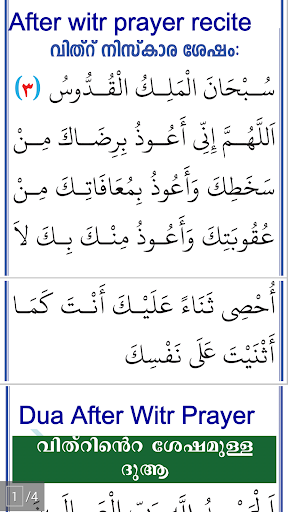 After witr prayer recite
വിത്റ് നിസ്കാര ശേഷം:
سُبْحَانَ الْمَلِكُ الْقُدُّوسُ (٣)
اَللَّهُمَّ إِنِّي أَعُوذُ بِرِضَاكَ مِنْ
سَخَطِكَ وَأَعُوذُ بِمُعَافَاتِكَ مِنْ
عُقُوبَتِكَ وَأَعُوذُ مِنْكَ بِكَ لاَ
أُحْصِى ثَنَاءً عَلَيْكَ أَنْتَ كَمَا
أَثْنَيْتَ عَلَى نَفْسِكَ
Dua After Witr Prayer
വിത്റിന്റെ ശേഷമുള്ള
ദുആ
1 /4